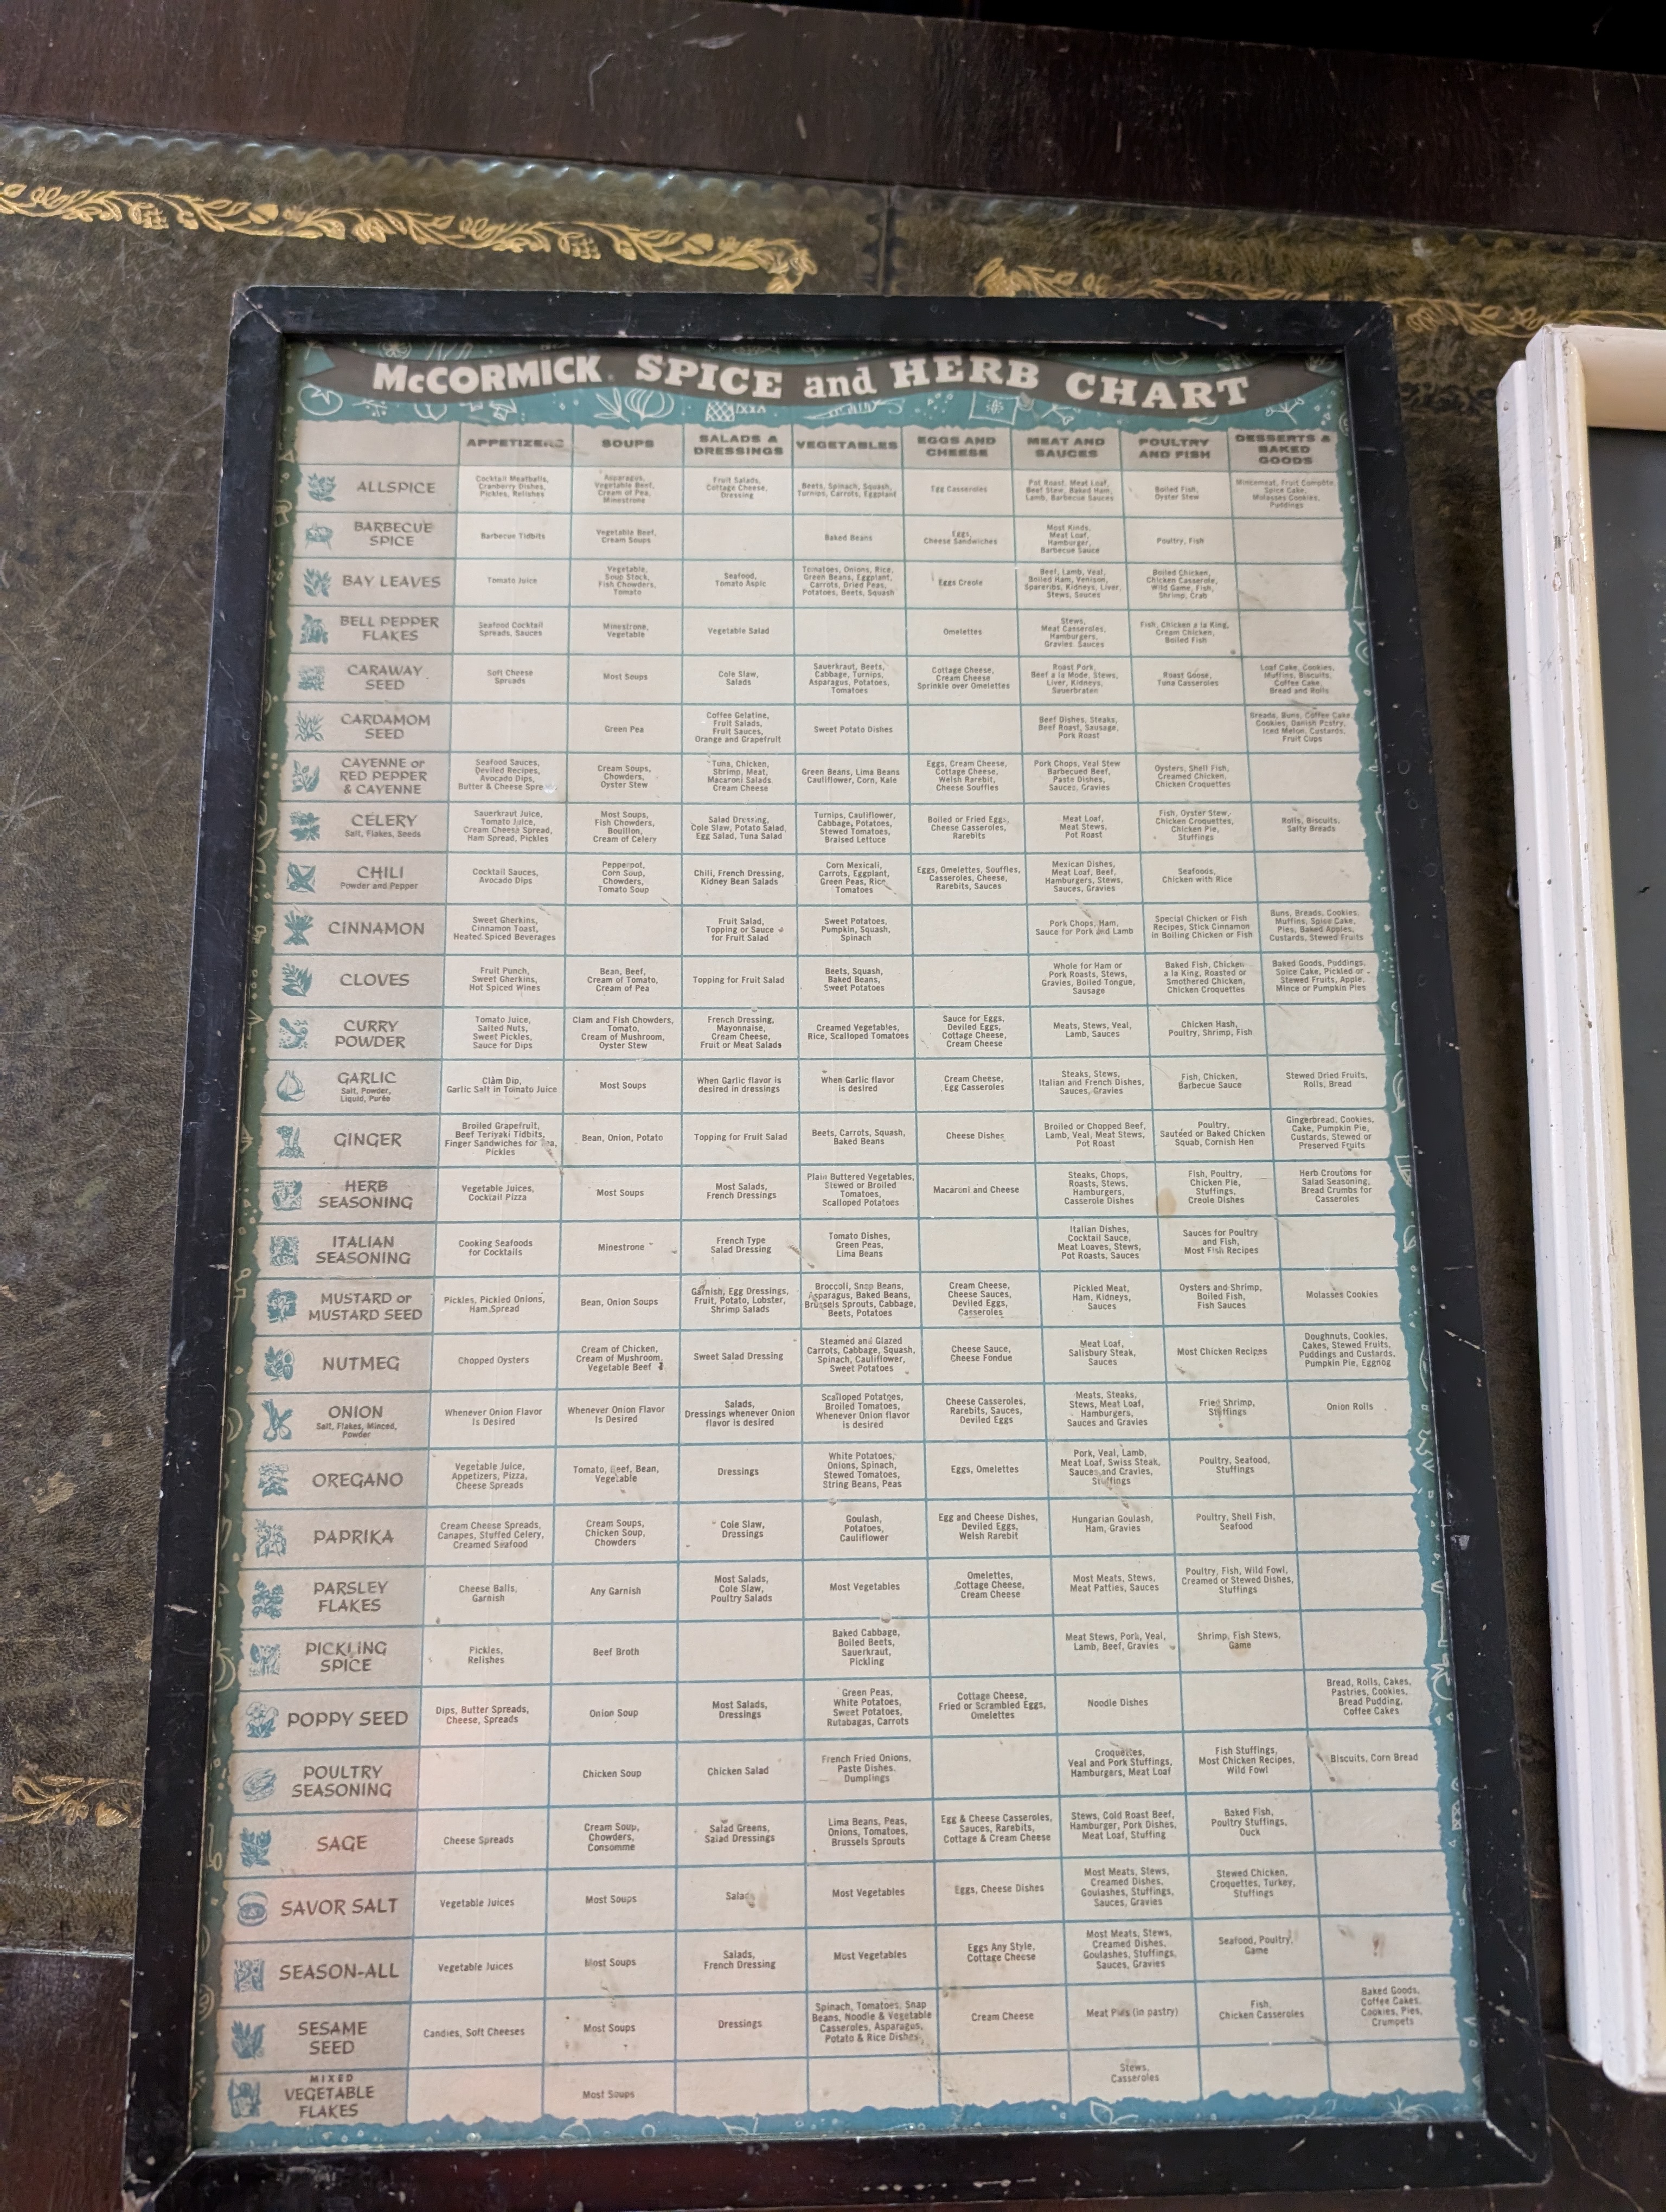 McCORMICK SPICE and HERB CHART
APPETIZERS
SOUPS
SALADS &
DRESSINGS
VEGETABLES
EGGS AND
CHEESE
MEAT AND
SAUCES
POULTRY
AND FISH
DESSERTS &
BAKED
GOODS
ALLSPICE
Cocktail Meatballs,
Cranberry Dishes,
Pickles, Relishes
Asparagus,
Vegetable Beef,
Cream of Pea,
Minestrone
Fruit Salads,
Cottage Cheese,
Dressing
Beets, Spinach, Squash,
Turnips, Carrots, Eggplant
Egg Casseroles
Pot Roast, Meat Loaf,
Beef Stew, Baked Ham,
Lamb, Barbecue Sauces
Boiled Fish,
Oyster Stew
Mincemeat, Fruit Compote,
Spice Cake,
Molasses Cookies,
Puddings
BARBECUE
SPICE
Barbecue Tidbits
Vegetable Beef,
Cream Soups
Baked Beans
Eggs,
Cheese Sandwiches
Most Kinds,
Meat Loaf,
Hamburger,
Barbecue Sauce
Poultry, Fish
BAY LEAVES
Tomato Juice
Vegetable,
Soup Stock,
Fish Chowders,
Tomato
Seafood,
Tomato Aspic
Tomatoes, Onions, Rice,
Green Beans, Eggplant,
Carrots, Dried Peas,
Potatoes, Beets, Squash
Eggs Creole
Beef, Lamb, Veal,
Boiled Ham, Venison,
Spareribs, Kidneys, Liver,
Stews, Sauces
Boiled Chicken,
Chicken Casserole,
Wild Game, Fish,
Shrimp, Crab
BELL PEPPER
FLAKES
Seafood Cocktail
Spreads, Sauces
Minestrone,
Vegetable
Vegetable Salad
Omelettes
Stews,
Meat Casseroles,
Hamburgers,
Gravies, Sauces
Fish, Chicken a la King,
Cream Chicken,
Boiled Fish
CARAWAY
SEED
Soft Cheese
Spreads
Most Soups
Cole Slaw,
Salads
Sauerkraut, Beets,
Cabbage, Turnips,
Asparagus, Potatoes,
Tomatoes
Cottage Cheese,
Cream Cheese
Sprinkle over Omelettes
Roast Pork,
Beef a la Mode, Stews,
Liver, Kidneys,
Sauerbraten
Roast Goose,
Tuna Casseroles
Loaf Cake, Cookies,
Muffins, Biscuits,
Coffee Cake,
Bread and Rolls
CARDAMOM
SEED
Green Pea
Coffee Gelatine,
Fruit Salads,
Fruit Sauces,
Orange and Grapefruit
Sweet Potato Dishes
Beef Dishes, Steaks,
Beef Roast, Sausage,
Pork Roast
Breads, Buns, Coffee Cake,
Cookies, Danish Pastry,
Iced Melon, Custards,
Fruit Cups
CAYENNE or
RED PEPPER
& CAYENNE
Seafood Sauces,
Deviled Recipes,
Avocado Dips,
Butter & Cheese
Cream Soups,
Chowders,
Oyster Stew
Tuna, Chicken,
Shrimp, Meat,
Macaroni Salads,
Cream Cheese
Green Beans, Lima Beans
Cauliflower, Corn, Kale
Eggs, Cream Cheese,
Cottage Cheese,
Welsh Rarebit,
Cheese Souffles
Pork Chops, Veal Stew
Barbecued Beef,
Paste Dishes,
Sauces, Gravies
Oysters, Shell Fish,
Creamed Chicken,
Chicken Croquettes
CELERY
Salt, Flakes, Seeds
Sauerkraut Juice,
Tomato Juice,
Cream Cheese Spread,
Ham Spread, Pickles
Most Soups,
Fish Chowders,
Bouillon,
Cream of Celery
Salad Dressing,
Cole Slaw, Potato Salad,
Egg Salad, Tuna Salad
Turnips, Cauliflower,
Cabbage, Potatoes,
Stewed Tomatoes,
Braised Lettuce
Boiled or Fried Eggs,
Cheese Casseroles,
Rarebits
Meat Loaf,
Meat Stews,
Pot Roast
Fish, Oyster Stew,
Chicken Croquettes,
Chicken Pie,
Stuffings
Rolls, Biscuits,
Salty Breads
CHILI
Powder and Pepper
Cocktail Sauces,
Avocado Dips
Pepperpot,
Corn Soup,
Chowders,
Tomato Soup
Chili, French Dressing,
Kidney Bean Salads
Corn Mexicali,
Carrots, Eggplant,
Green Peas, Rice,
Tomatoes
Eggs, Omelettes, Souffles,
Casseroles, Cheese,
Rarebits, Sauces
Mexican Dishes,
Meat Loaf, Beef,
Hamburgers, Stews,
Sauces, Gravies
Seafoods,
Chicken with Rice
CINNAMON
Sweet Gherkins,
Cinnamon Toast,
Heated Spiced Beverages
Fruit Salad,
Topping or Sauce
for Fruit Salad
Sweet Potatoes,
Pumpkin, Squash,
Spinach
Pork Chops, Ham,
Sauce for Pork and Lamb
Special Chicken or Fish
Recipes, Stick Cinnamon
in Boiling Chicken or Fish
Buns, Breads, Cookies,
Muffins, Spice Cake,
Pies, Baked Apples,
Custards, Stewed Fruits
CLOVES
Fruit Punch,
Sweet Gherkins,
Hot Spiced Wines
Bean, Beef,
Cream of Tomato,
Cream of Pea
Topping for Fruit Salad
Beets, Squash,
Baked Beans,
Sweet Potatoes
Whole for Ham or
Pork Roasts, Stews,
Gravies, Boiled Tongue,
Sausage
Baked Fish, Chicken
a la King, Roasted or
Smothered Chicken,
Chicken Croquettes
Baked Goods, Puddings,
Spice Cake, Pickled or
Stewed Fruits, Apple,
Mince or Pumpkin Pies
CURRY
POWDER
Tomato Juice,
Salted Nuts,
Sweet Pickles,
Sauce for Dips
Clam and Fish Chowders,
Tomato,
Cream of Mushroom,
Oyster Stew
French Dressing,
Mayonnaise,
Cream Cheese,
Fruit or Meat Salads
Creamed Vegetables,
Rice, Scalloped Tomatoes
Sauce for Eggs,
Deviled Eggs,
Cottage Cheese,
Cream Cheese
Meats, Stews, Veal,
Lamb, Sauces
Chicken Hash,
Poultry, Shrimp, Fish
GARLIC
Salt, Powder,
Liquid, Purée
Clam Dip,
Garlic Salt in Tomato Juice
Most Soups
When Garlic flavor is
desired in dressings
When Garlic flavor
is desired
Cream Cheese,
Egg Casseroles
Steaks, Stews,
Italian and French Dishes,
Sauces, Gravies
Fish, Chicken,
Barbecue Sauce
Stewed Dried Fruits,
Rolls, Bread
GINGER
Broiled Grapefruit,
Beef Teriyaki Tidbits,
Finger Sandwiches for Tea,
Pickles
Bean, Onion, Potato
Topping for Fruit Salad
Beets, Carrots, Squash,
Baked Beans
Cheese Dishes
Broiled or Chopped Beef,
Lamb, Veal, Meat Stews,
Pot Roast
Poultry,
Sautéed or Baked Chicken
Squab, Cornish Hen
Gingerbread, Cookies,
Cake, Pumpkin Pie,
Custards, Stewed or
Preserved Fruits
HERB
SEASONING
Vegetable Juices,
Cocktail Pizza
Most Soups
Most Salads,
French Dressings
Plain Buttered Vegetables,
Stewed or Broiled
Tomatoes,
Scalloped Potatoes
Macaroni and Cheese
Steaks, Chops,
Roasts, Stews,
Hamburgers,
Casserole Dishes
Fish, Poultry,
Chicken Pie,
Stuffings,
Creole Dishes
Herb Croutons for
Salad Seasoning,
Bread Crumbs for
Casseroles
ITALIAN
SEASONING
Cooking Seafoods
for Cocktails
Minestrone
French Type
Salad Dressing
Tomato Dishes,
Green Peas,
Lima Beans
Italian Dishes,
Cocktail Sauce,
Meat Loaves, Stews,
Pot Roasts, Sauces
Sauces for Poultry
and Fish,
Most Fish Recipes
MUSTARD or
MUSTARD SEED
Pickles, Pickled Onions,
Ham Spread
Bean, Onion Soups
Garnish, Egg Dressings,
Fruit, Potato, Lobster,
Shrimp Salads
Broccoli, Snap Beans,
Asparagus, Baked Beans,
Brussels Sprouts, Cabbage,
Beets, Potatoes
Cream Cheese,
Cheese Sauces,
Deviled Eggs,
Casseroles
Pickled Meat,
Ham, Kidneys,
Sauces
Oysters and Shrimp,
Boiled Fish,
Fish Sauces
Molasses Cookies
NUTMEG
Chopped Oysters
Cream of Chicken,
Cream of Mushroom,
Vegetable Beef
Sweet Salad Dressing
Steamed and Glazed
Carrots, Cabbage, Squash,
Spinach, Cauliflower,
Sweet Potatoes
Cheese Sauce,
Cheese Fondue
Meat Loaf,
Salisbury Steak,
Sauces
Most Chicken Recipes
Doughnuts, Cookies,
Cakes, Stewed Fruits,
Puddings and Custards,
Pumpkin Pie, Eggnog
ONION
Salt, Flakes, Minced,
Powder
Whenever Onion Flavor
Is Desired
Whenever Onion Flavor
Is Desired
Salads,
Dressings whenever Onion
flavor is desired
Scalloped Potatoes,
Broiled Tomatoes,
Whenever Onion flavor
is desired
Cheese Casseroles,
Rarebits, Sauces,
Deviled Eggs
Meats, Steaks,
Stews, Meat Loaf,
Hamburgers,
Sauces and Gravies
Fried Shrimp,
Stuffings
Onion Rolls
OREGANO
Vegetable Juice,
Appetizers, Pizza,
Cheese Spreads
Tomato, Beef, Bean,
Vegetable
Dressings
White Potatoes,
Onions, Spinach,
Stewed Tomatoes,
String Beans, Peas
Eggs, Omelettes
Pork, Veal, Lamb,
Meat Loaf, Swiss Steak,
Sauces and Gravies,
Stuffings
Poultry, Seafood,
Stuffings
PAPRIKA
Cream Cheese Spreads,
Canapes, Stuffed Celery,
Creamed Seafood
Cream Soups,
Chicken Soup,
Chowders
Cole Slaw,
Dressings
Goulash,
Potatoes,
Cauliflower
Egg and Cheese Dishes,
Deviled Eggs,
Welsh Rarebit
Hungarian Goulash,
Ham, Gravies
Poultry, Shell Fish,
Seafood
PARSLEY
FLAKES
Cheese Balls,
Garnish
Any Garnish
Most Salads,
Cole Slaw,
Poultry Salads
Most Vegetables
Omelettes,
Cottage Cheese,
Cream Cheese
Most Meats, Stews,
Meat Patties, Sauces
Poultry, Fish, Wild Fowl,
Creamed or Stewed Dishes,
Stuffings
PICKLING
SPICE
Pickles,
Relishes
Beef Broth
Baked Cabbage,
Boiled Beets,
Sauerkraut,
Pickling
Meat Stews, Pork, Veal,
Lamb, Beef, Gravies
Shrimp, Fish Stews,
Game
POPPY SEED
Dips, Butter Spreads,
Cheese, Spreads
Onion Soup
Most Salads,
Dressings
Green Peas,
White Potatoes,
Sweet Potatoes,
Rutabagas, Carrots
Cottage Cheese,
Fried or Scrambled Eggs,
Omelettes
Noodle Dishes
Bread, Rolls, Cakes,
Pastries, Cookies,
Bread Pudding,
Coffee Cakes
POULTRY
SEASONING
Chicken Soup
Chicken Salad
French Fried Onions,
Paste Dishes,
Dumplings
Croquettes,
Veal and Pork Stuffings,
Hamburgers, Meat Loaf
Fish Stuffings,
Most Chicken Recipes,
Wild Fowl
Biscuits, Corn Bread
SAGE
Cheese Spreads
Cream Soup,
Chowders,
Consomme
Salad Greens,
Salad Dressings
Lima Beans, Peas,
Onions, Tomatoes,
Brussels Sprouts
Egg & Cheese Casseroles,
Sauces, Rarebits,
Cottage & Cream Cheese
Stews, Cold Roast Beef,
Hamburger, Pork Dishes,
Meat Loaf, Stuffing
Baked Fish,
Poultry Stuffings,
Duck
SAVOR SALT
Vegetable Juices
Most Soups
Most Vegetables
Eggs, Cheese Dishes
Most Meats, Stews,
Creamed Dishes,
Goulashes, Stuffings,
Sauces, Gravies
Stewed Chicken,
Croquettes, Turkey,
Stuffings
SEASON-ALL
Vegetable Juices
Most Soups
Salads,
French Dressing
Most Vegetables
Eggs Any Style,
Cottage Cheese
Most Meats, Stews,
Creamed Dishes,
Goulashes, Stuffings,
Sauces, Gravies
Seafood, Poultry,
Game
SESAME
SEED
Candies, Soft Cheeses
Most Soups
Dressings
Spinach, Tomatoes, Snap
Beans, Noodle & Vegetable
Casseroles, Asparagus,
Potato & Rice Dishes
Cream Cheese
Meat Pies (in pastry)
Fish,
Chicken Casseroles
Baked Goods,
Coffee Cakes,
Cookies, Pies,
Crumpets
MIXED
VEGETABLE
FLAKES
Most Soups
Stews,
Casseroles